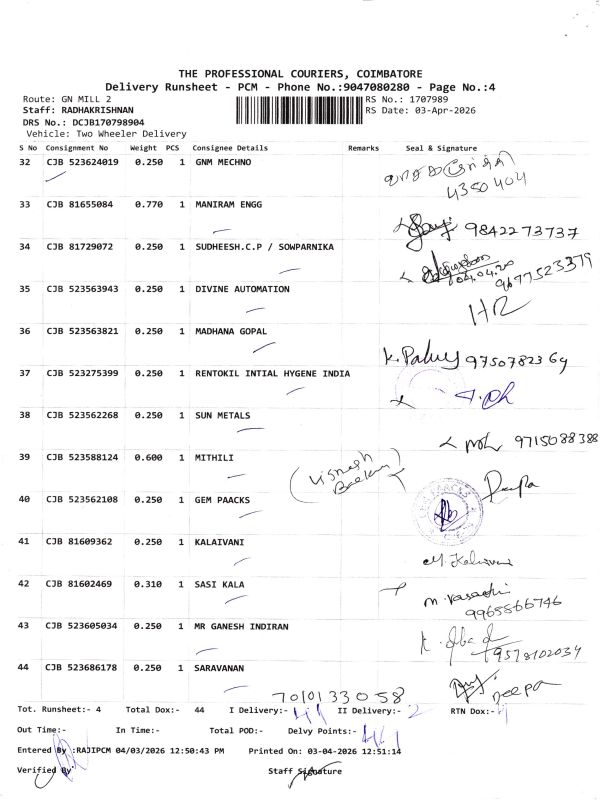 THE PROFESSIONAL COURIERS, COIMBATORE
Delivery Runsheet - PCM - Phone No.:9047080280 - Page No.:4
Route: GN MILL 2 RS No.: 1707989
Staff: RADHAKRISHNAN RS Date: 03-Apr-2026
DRS No.: DCJB170798904
Vehicle: Two Wheeler Delivery
S No Consignment No Weight PCS Consignee Details Remarks Seal & Signature
32 CJB 523624019 0.250 1 GNM MECHNO
4350404
33 CJB 81655084 0.770 1 MANIRAM ENGG
9842273737
34 CJB 81729072 0.250 1 SUDHEESH.C.P / SOWPARNIKA
04.04.26 9677523379
35 CJB 523563943 0.250 1 DIVINE AUTOMATION
HR
36 CJB 523563821 0.250 1 MADHANA GOPAL
9750782364
37 CJB 523275399 0.250 1 RENTOKIL INTIAL HYGENE INDIA
38 CJB 523562268 0.250 1 SUN METALS
9715088388
39 CJB 523588124 0.600 1 MITHILI
Deepa
40 CJB 523562108 0.250 1 GEM PAACKS
41 CJB 81609362 0.250 1 KALAIVANI
42 CJB 81602469 0.310 1 SASI KALA
9965566746
43 CJB 523605034 0.250 1 MR GANESH INDIRAN
9578102034
44 CJB 523686178 0.250 1 SARAVANAN
7010133058 Deepa
Tot. Runsheet:- 4 Total Dox:- 44 I Delivery:- II Delivery:- 2 RTN Dox:-
Out Time:- In Time:- Total POD:- Delvy Points:-
Entered By :RAJIPCM 04/03/2026 12:50:43 PM Printed On: 03-04-2026 12:51:14
Verified By Staff Signature